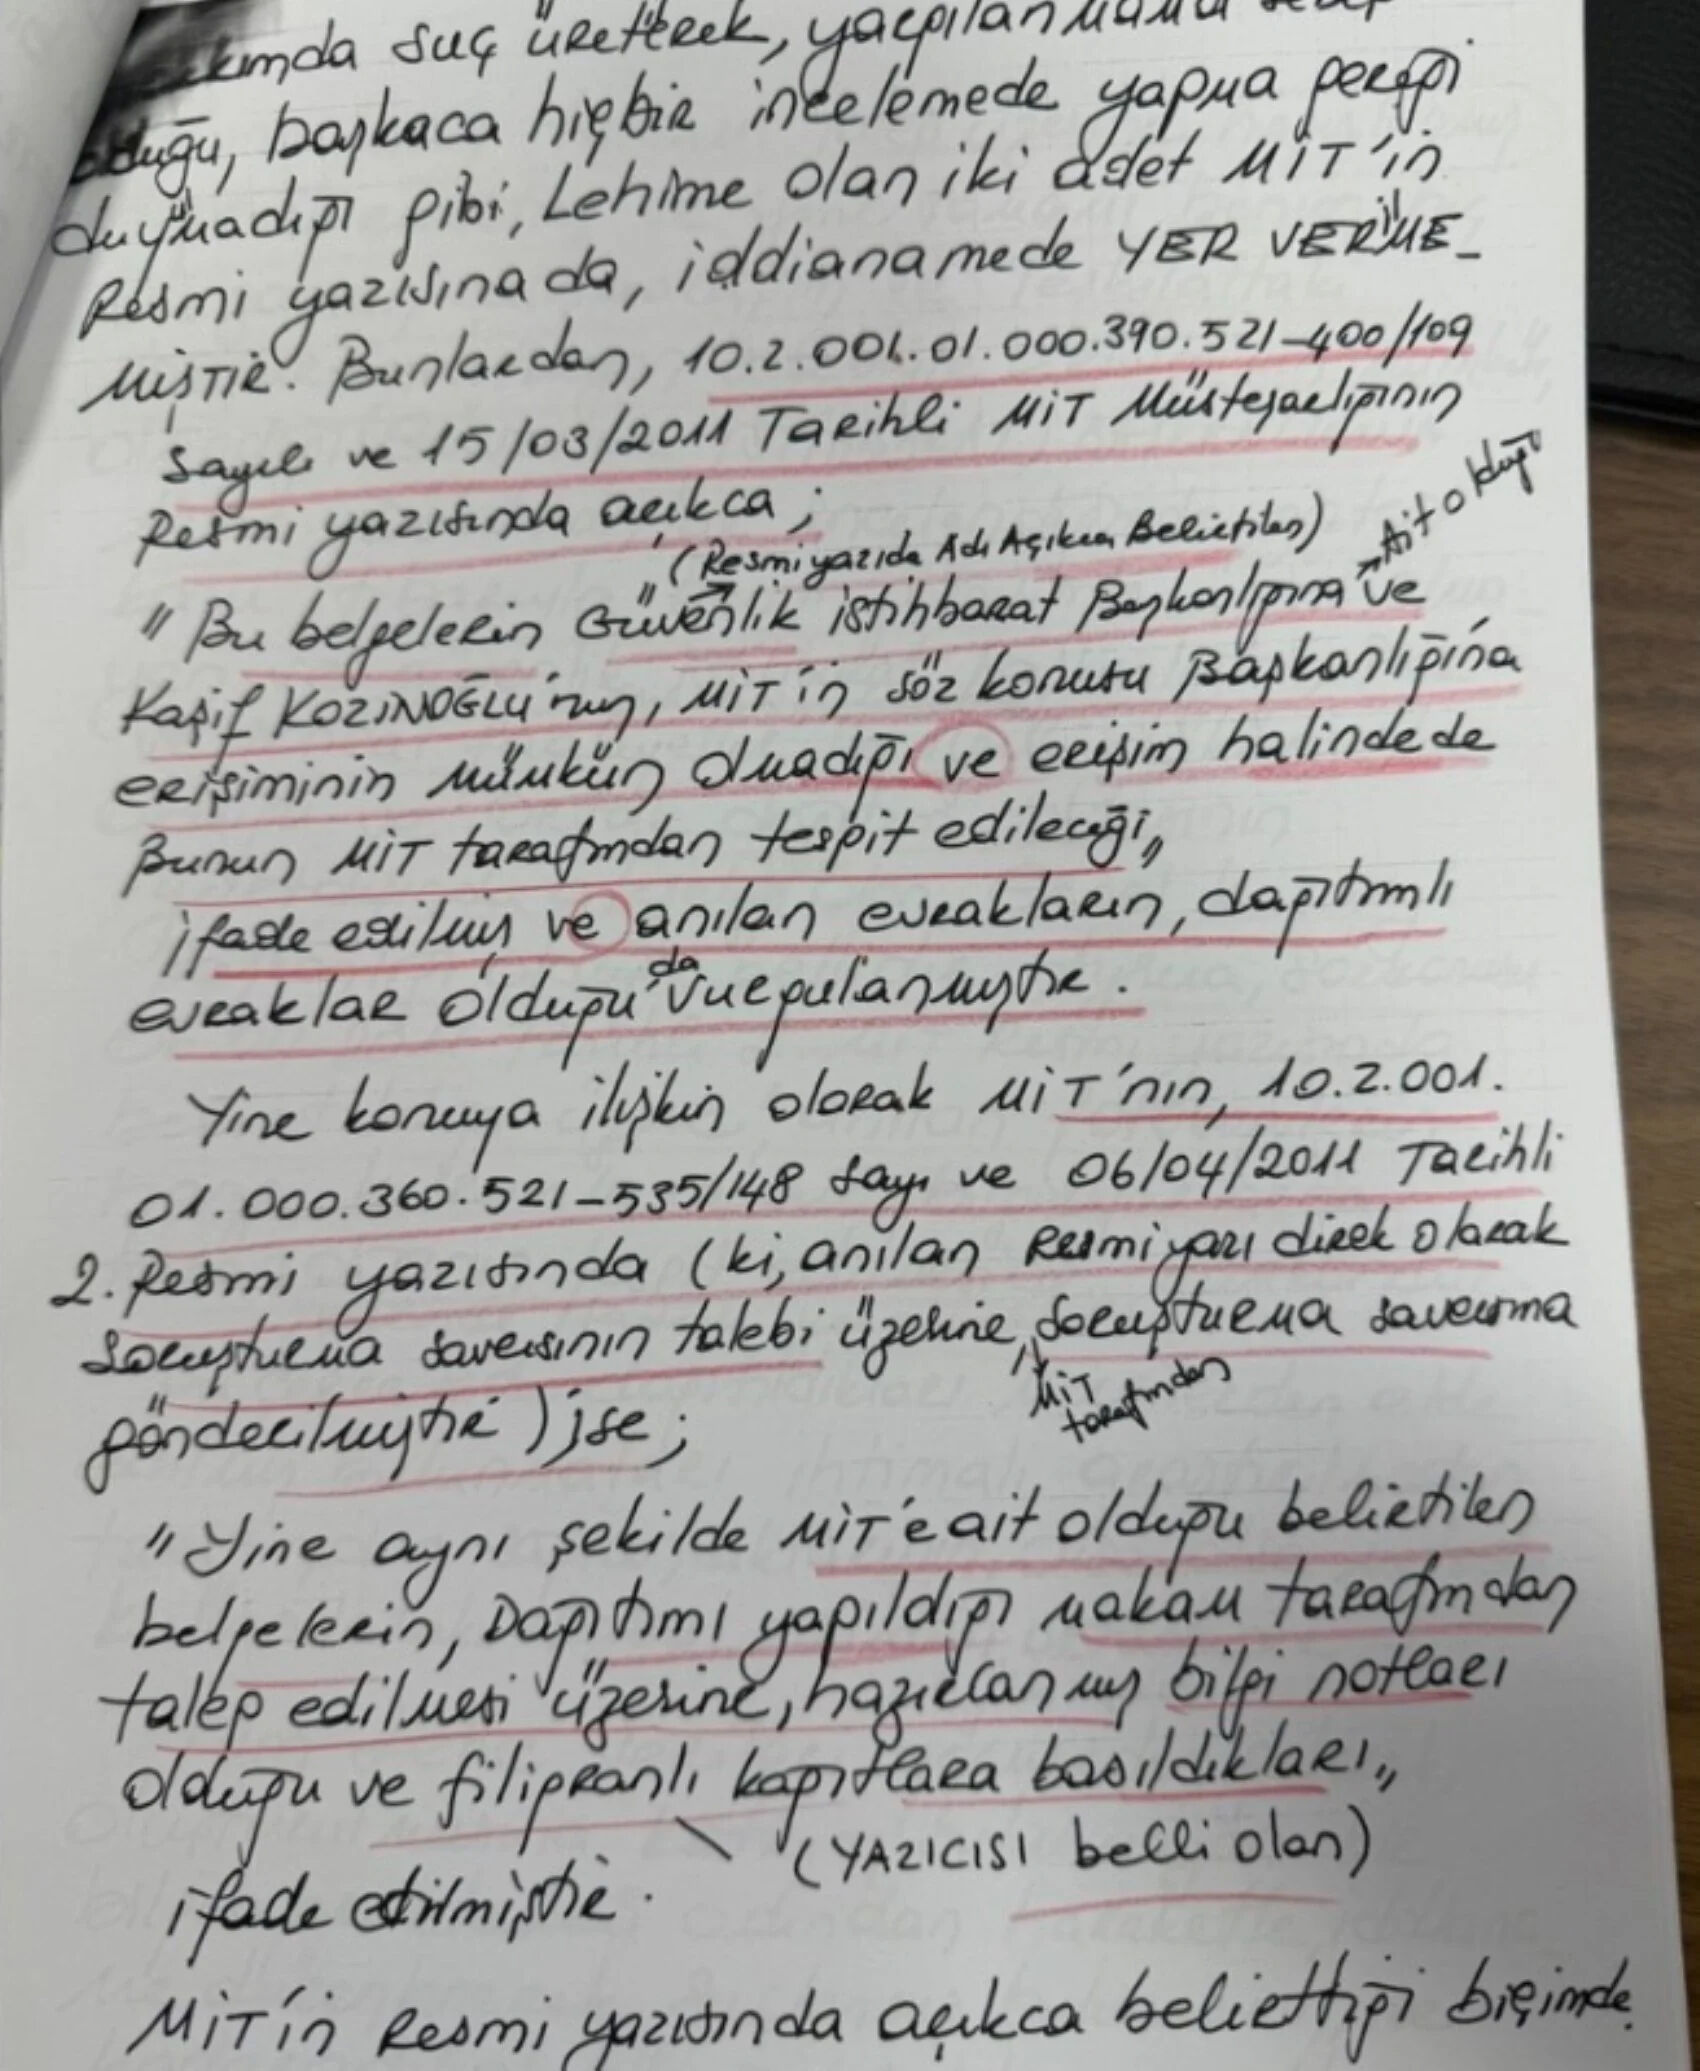 suç üreterek,
olduğu, başkaca hiçbir incelemede yapma gereği
duymadığı gibi, Lehime olan iki adet MİT'in
Resmi yazısınada, iddianamede YER VERİLME-
MİŞTİR. Bunlardan, 10.2.001.01.000.390.521-400/109
Sayılı ve 15/03/2011 Tarihli MİT Müsteşarlığının
Resmi yazısında açıkca ;
(Resmi yazıda Adı Açıkca Belirtilen)
Ait olduğu
"Bu belgelerin Güvenlik istihbarat Başkanlığına ve
Kaşif KOZİNOĞLU'nun, MİT'in söz konusu Başkanlığına
erişiminin mümkün olmadığı ve erişim halindede
Bunun MİT tarafından tespit edileceği"
ifade edilmiş ve anılan evrakların, dağıtımlı
evraklar olduğu da vurgulanmıştır.
Yine konuya ilişkin olarak MİT'nın, 10.2.001.
01.000.360.521-535/148 sayı ve 06/04/2011 Tarihli
2. Resmi yazısında (ki, anılan Resmi yazı direk olarak
Soruşturma savcısının talebi üzerine, Soruşturma savcısına
MİT
tarafından
gönderilmiştir) ise ;
"Yine aynı şekilde MİT'e ait olduğu belirtilen
belgelerin, Dağıtımı yapıldığı makam tarafından
talep edilmesi üzerine, hazırlanmış bilgi notları
olduğu ve filigranlı kağıtlara basıldıkları"
(YAZICISI belli olan)
ifade edilmiştir.
MİT'in Resmi yazısında açıkca belirttiği biçimde.